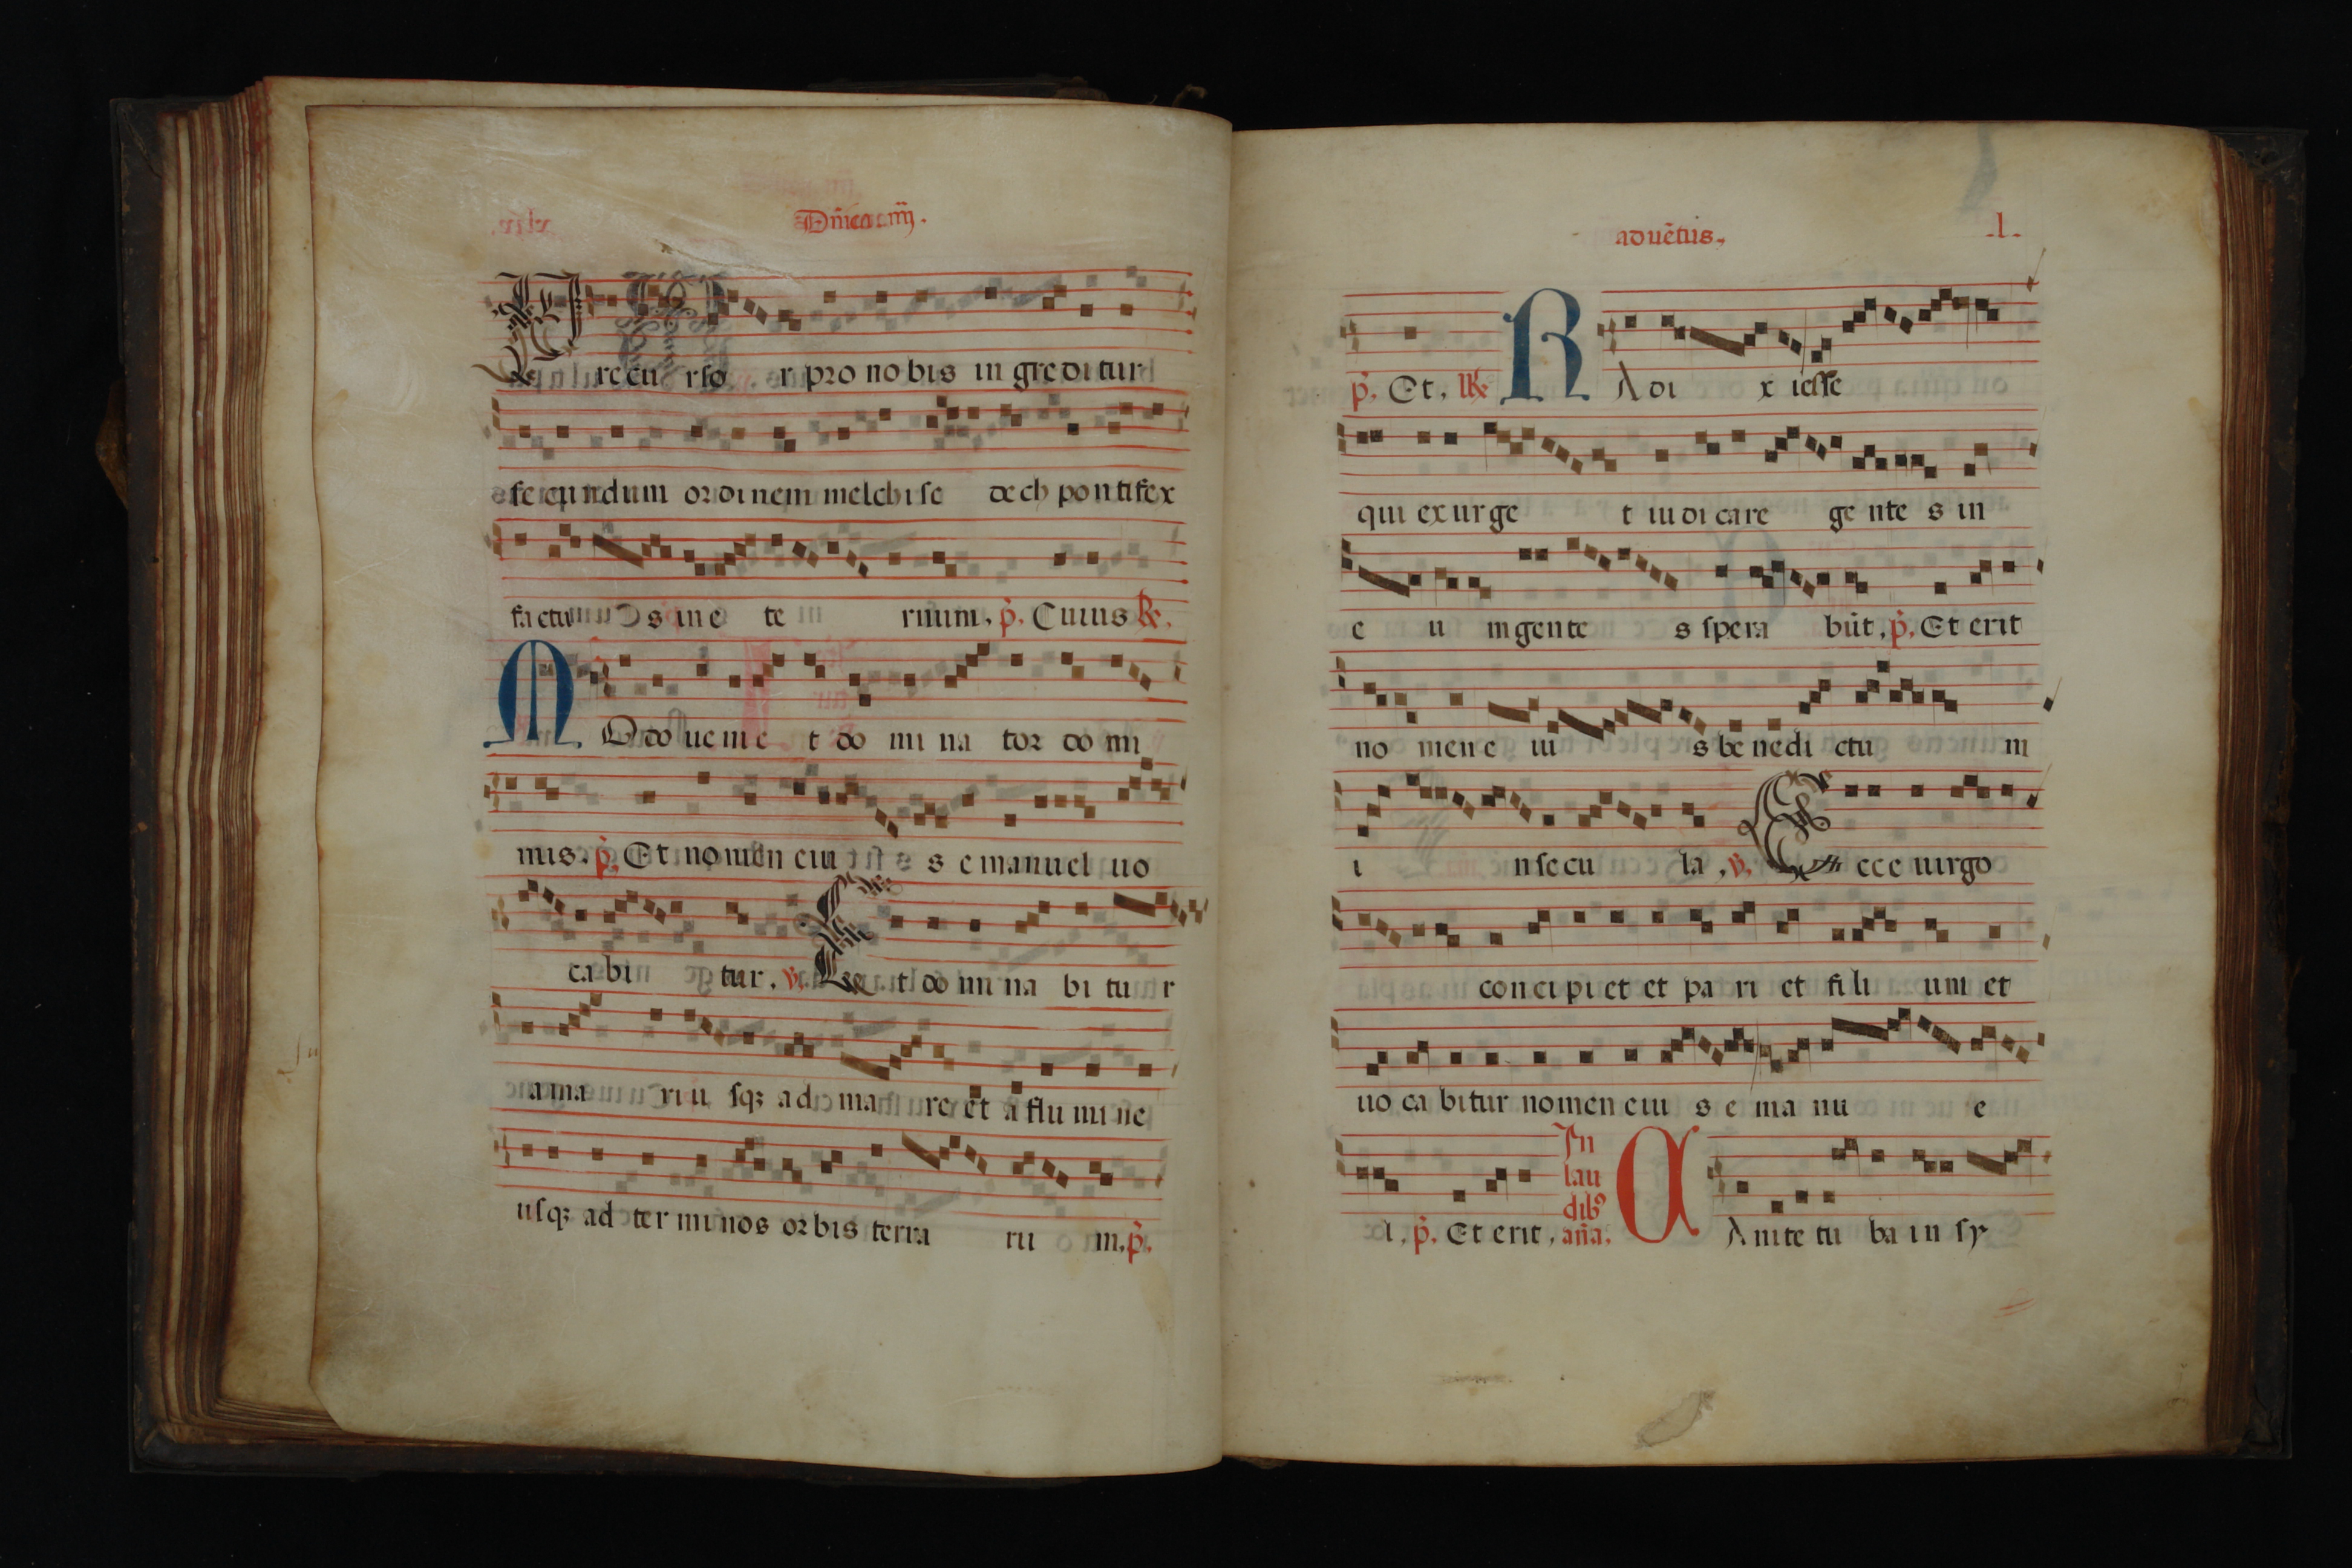 Dñica iiij.
Precurso r pro nobis in greditur
secundum ordinem melchise dech pontifex
factu s in e te rnum. p̃. Cuius ℟.
MOdo uenie t do mi na tor do mi
nus. p̃. Et nomen eiu s emanuel uo
cabi tur. ℣. Et do mi na bi tu r
a ma ri u sqꝫ ad ma re et a flu mi ne
usqꝫ ad ter minos orbis terra ru m. p̃.
aduẽtus.
.l.
p̃. Et. ℟. RAdi x iesse
qui exurge t iudicare gente s in
e u m gente s spera bũt. p̃. Et erit
no men e iu s be nedi ctu m
i n secu la. ℣. Ecce uirgo
concipiet et pa ri et fili um et
uo ca bitur nomen eiu s e ma nu e
l. p̃. Et erit. In laudibꝰ aña. CAnite tu ba in sy